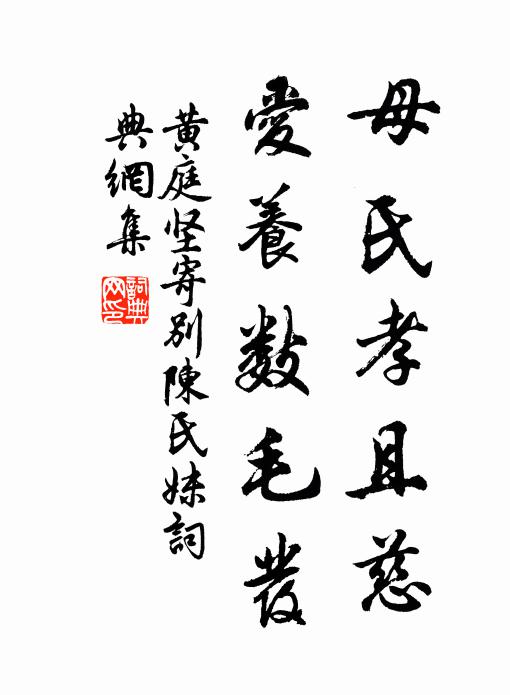 母氏孝且慈
愛養數毛發
黄庭坚寄別陳氏妹詞
典網集
詞典
网印